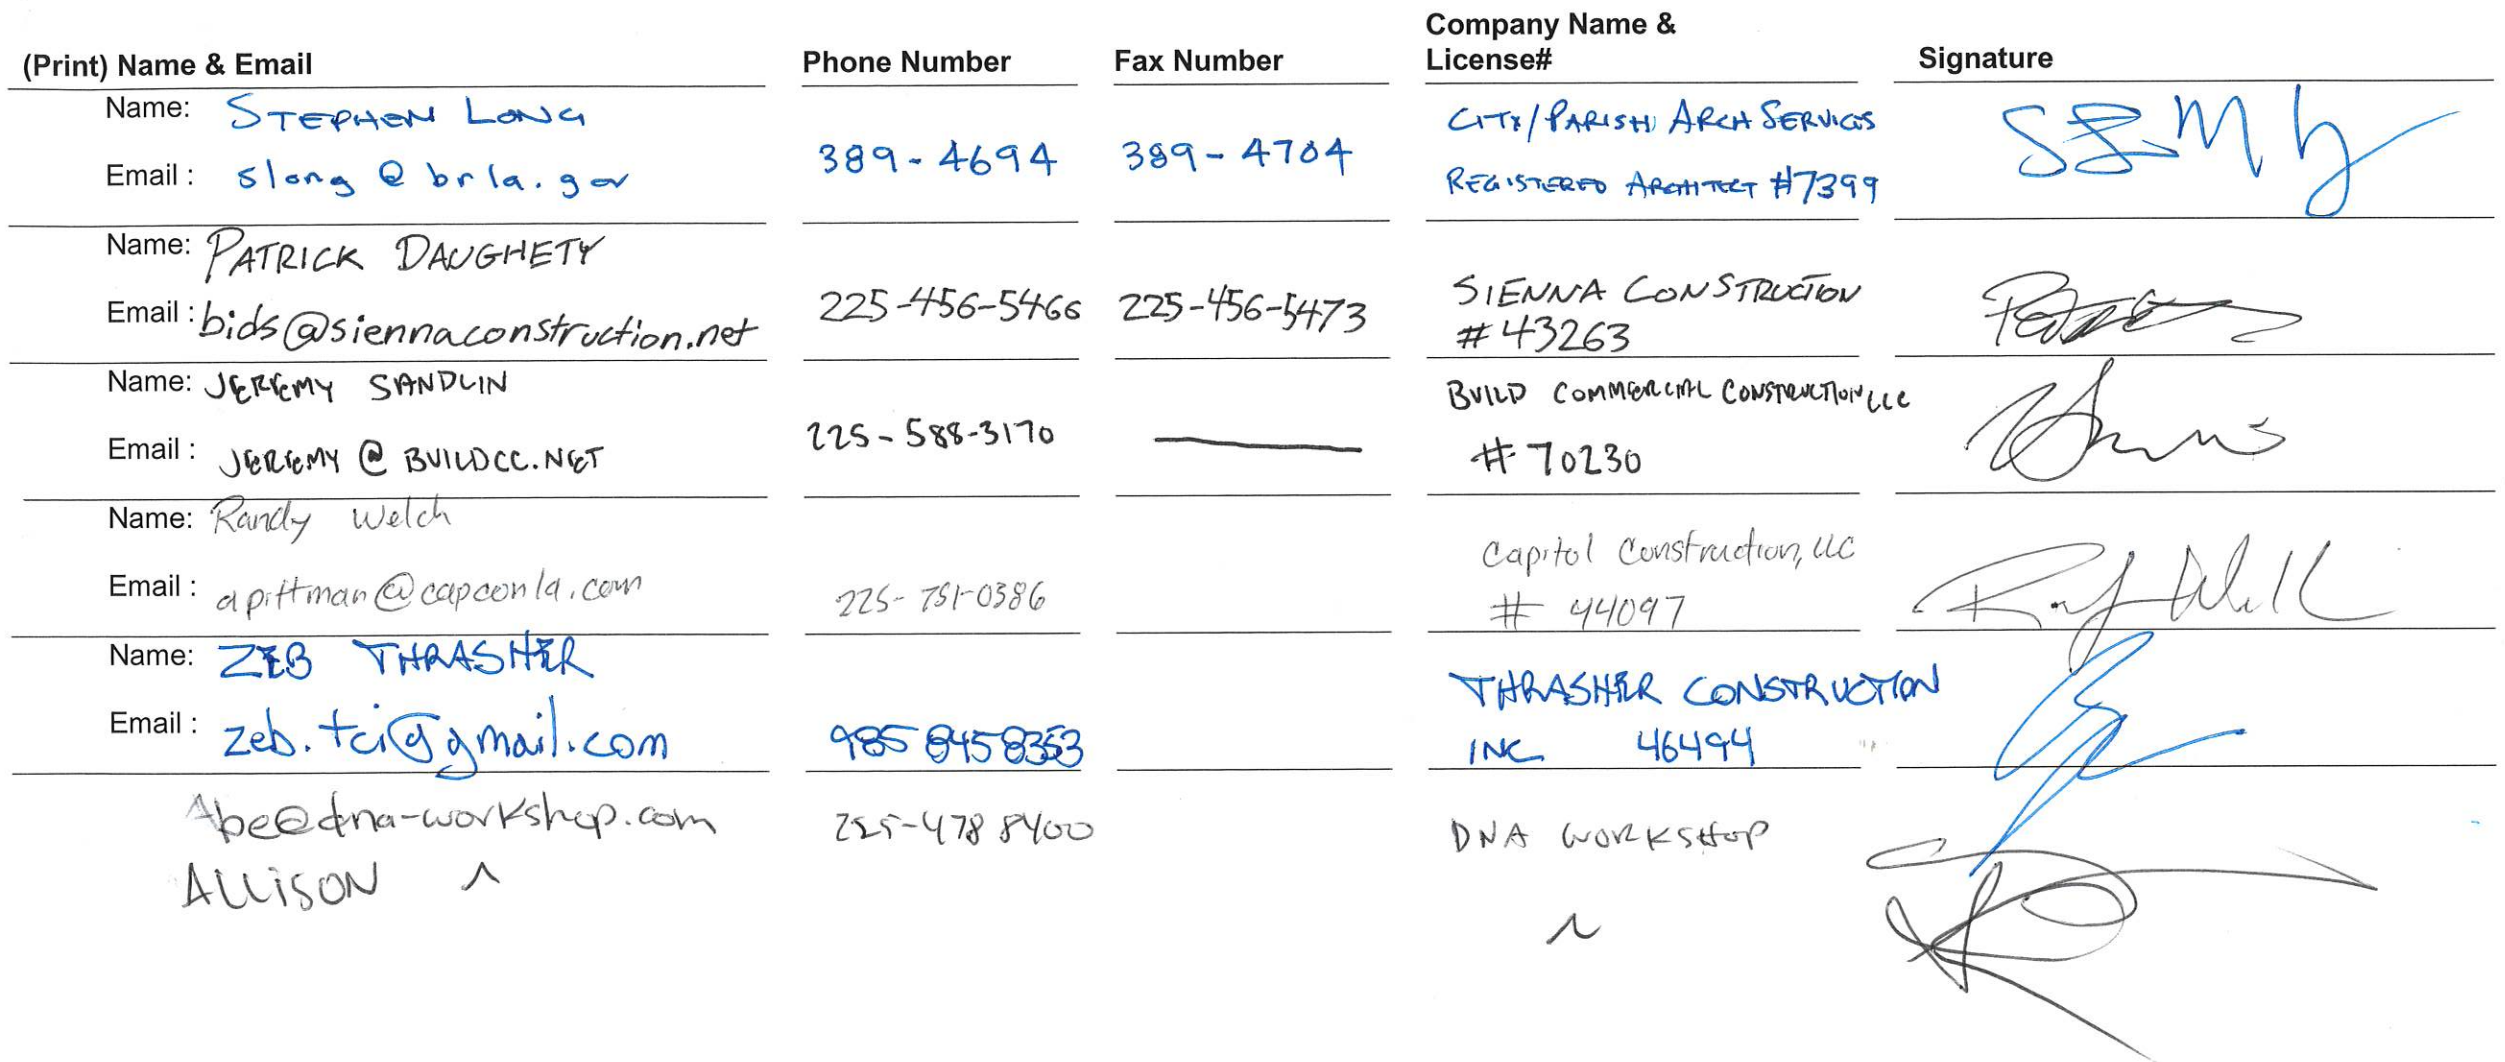 (Print) Name & Email Phone Number Fax Number Company Name & License# Signature
Name: STEPHEN LONG
Email : slong@brla.gov
389-4694
389-4704
CITY/PARISH ARCH SERVICES
REGISTERED ARCHITECT #7399
Name: PATRICK DAUGHETY
Email : bids@siennaconstruction.net
225-456-5466
225-456-5473
SIENNA CONSTRUCTION
#43263
Name: JEREMY SANDLIN
Email : JEREMY@BUILDCC.NET
225-588-3170
BUILD COMMERCIAL CONSTRUCTION LLC
#70230
Name: Randy Welch
Email : apittman@capconla.com
225-751-0386
Capitol Construction, LLC
# 44097
Name: ZEB THRASHER
Email : zeb.tci@gmail.com
985 845 8353
THRASHER CONSTRUCTION
INC 46494
Abe@dna-workshop.com
ALLISON
225-478 8400
DNA WORKSHOP